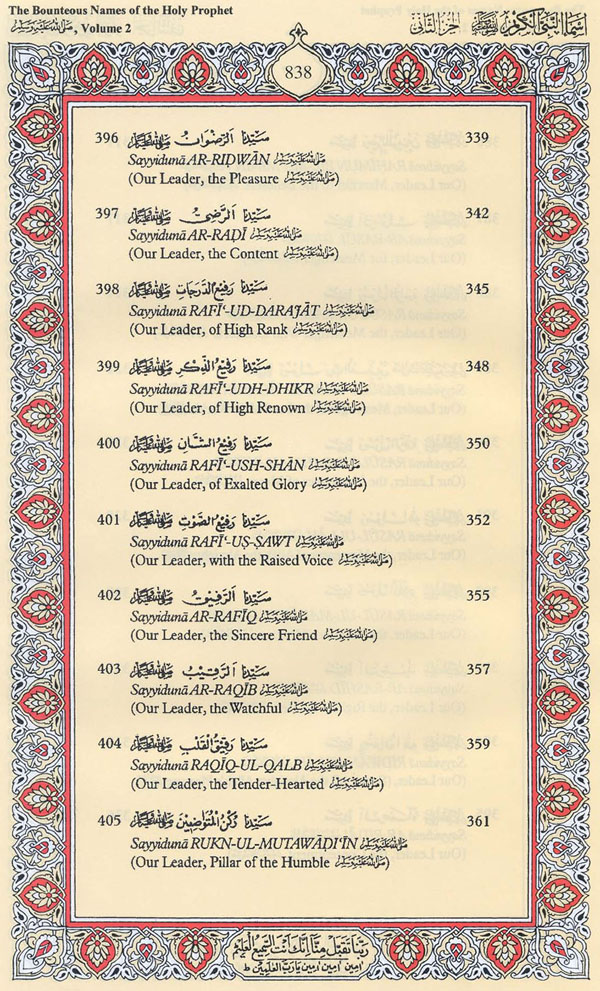 The Bounteous Names of the Holy Prophet
ﷺ, Volume 2
أسماء النبي الكريم ﷺ الجزء الثاني
838
396 سيدنا الرضوان ﷺ 339
Sayyidunā AR-RIḌWĀN ﷺ
(Our Leader, the Pleasure ﷺ)
397 سيدنا الرضي ﷺ 342
Sayyidunā AR-RAḌĪ ﷺ
(Our Leader, the Content ﷺ)
398 سيدنا رفيع الدرجات ﷺ 345
Sayyidunā RAFĪ‘-UD-DARAJĀT ﷺ
(Our Leader, of High Rank ﷺ)
399 سيدنا رفيع الذكر ﷺ 348
Sayyidunā RAFĪ‘-UDH-DHIKR ﷺ
(Our Leader, of High Renown ﷺ)
400 سيدنا رفيع الشان ﷺ 350
Sayyidunā RAFĪ‘-USH-SHĀN ﷺ
(Our Leader, of Exalted Glory ﷺ)
401 سيدنا رفيع الصوت ﷺ 352
Sayyidunā RAFĪ‘-UṢ-ṢAWT ﷺ
(Our Leader, with the Raised Voice ﷺ)
402 سيدنا الرفيق ﷺ 355
Sayyidunā AR-RAFĪQ ﷺ
(Our Leader, the Sincere Friend ﷺ)
403 سيدنا الرقيب ﷺ 357
Sayyidunā AR-RAQĪB ﷺ
(Our Leader, the Watchful ﷺ)
404 سيدنا رقيق القلب ﷺ 359
Sayyidunā RAQĪQ-UL-QALB ﷺ
(Our Leader, the Tender-Hearted ﷺ)
405 سيدنا ركن المتواضعين ﷺ 361
Sayyidunā RUKN-UL-MUTAWĀḌI‘ĪN ﷺ
(Our Leader, Pillar of the Humble ﷺ)
ربنا تقبل منا إنك أنت السميع العليم
امين امين امين يا رب العلمين ط